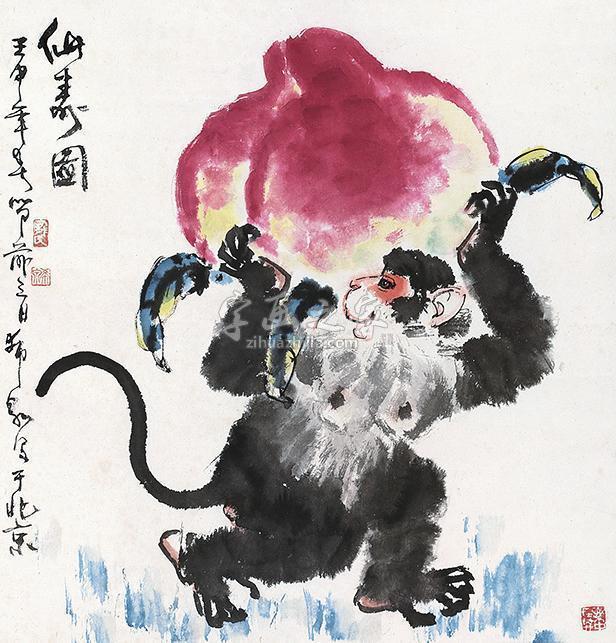 仙寿图
壬申年春节前三日希泉写于北京
字画之家
zihuazhijia.com